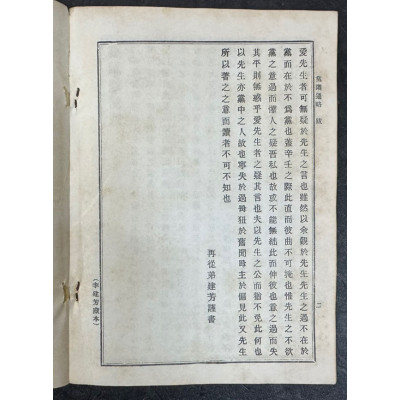 愛先生者可無疑於先生之言也雖然以余觀於先生先生之過不在於
黨而在於不爲黨也蓋辛壬之際此直而彼曲不可掩也惟先生之不欲
黨之意過而懼人之疑吾私也故或不能無絀此而伸彼也意之過而失
其平則無惑乎愛先生者之疑其言也夫以先生之公而猶不免此何也
以先生亦黨中之人故也寧失於過毋狃於舊聞時主於偏見此又先生
所以著之之意而讀者不可不知也
再從弟建芳謹書
黨議通略 跋
二
(李建芳藏本)